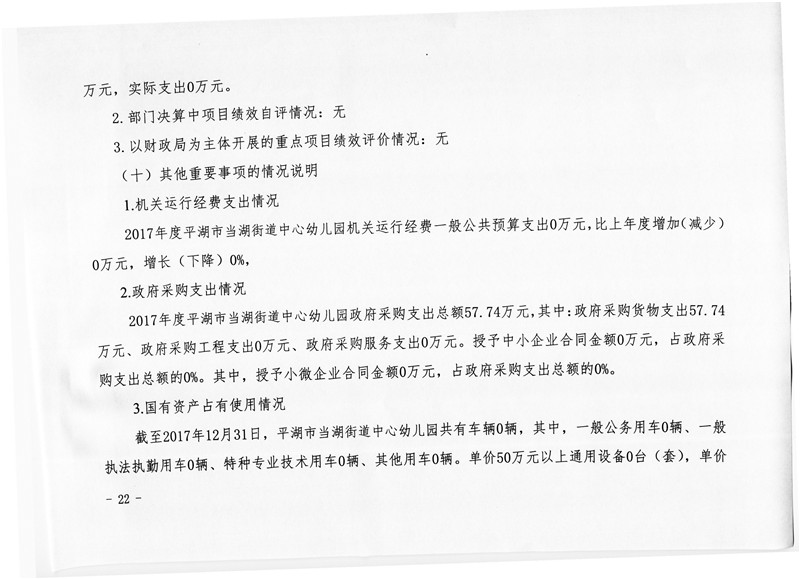 万元，实际支出0万元。
2.部门决算中项目绩效自评情况：无
3.以财政局为主体开展的重点项目绩效评价情况：无
（十）其他重要事项的情况说明
1.机关运行经费支出情况
2017年度平湖市当湖街道中心幼儿园机关运行经费一般公共预算支出0万元，比上年度增加（减少）
0万元，增长（下降）0%，
2.政府采购支出情况
2017年度平湖市当湖街道中心幼儿园政府采购支出总额57.74万元，其中：政府采购货物支出57.74
万元、政府采购工程支出0万元、政府采购服务支出0万元。授予中小企业合同金额0万元，占政府采
购支出总额的0%。其中，授予小微企业合同金额0万元，占政府采购支出总额的0%。
3.国有资产占有使用情况
截至2017年12月31日，平湖市当湖街道中心幼儿园共有车辆0辆，其中，一般公务用车0辆、一般
执法执勤用车0辆、特种专业技术用车0辆、其他用车0辆。单价50万元以上通用设备0台（套），单价
- 22 -